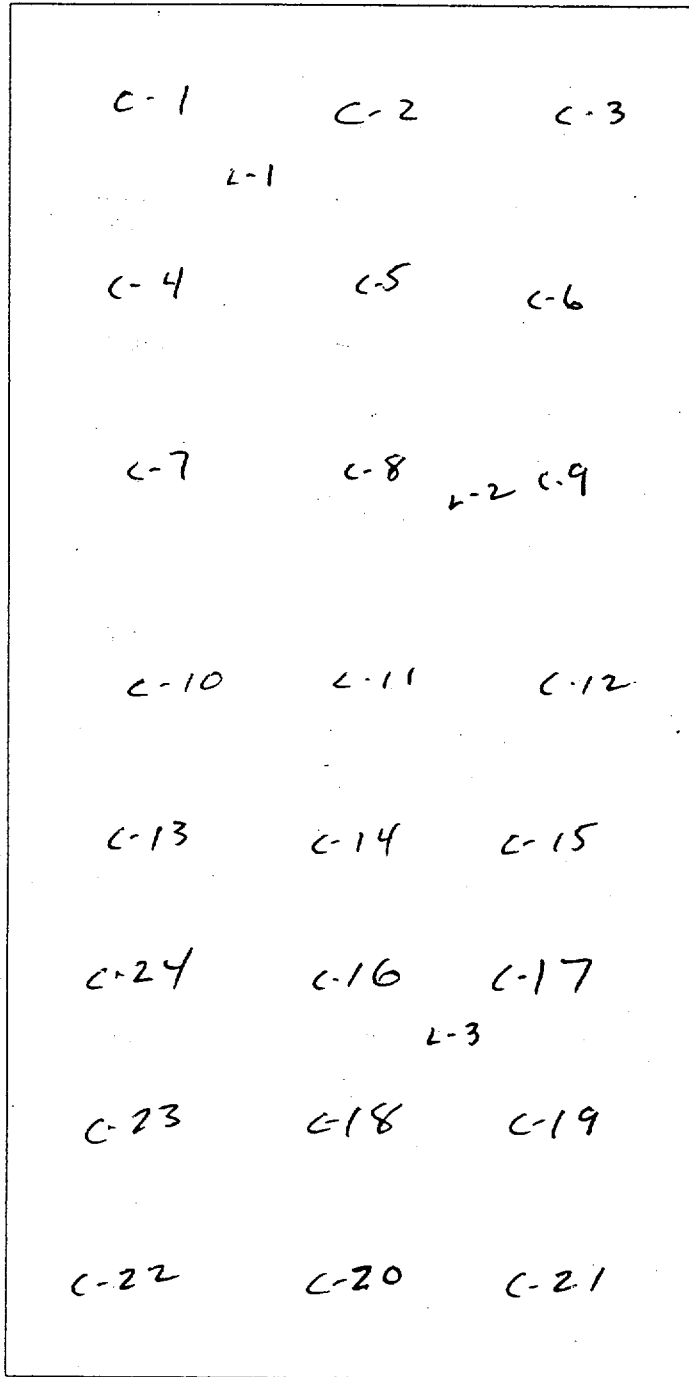 C-1 C-2 C-3
L-1
C-4 C-5 C-6
C-7 C-8 C-9
L-2
C-10 C-11 C-12
C-13 C-14 C-15
C-24 C-16 C-17
L-3
C-23 C-18 C-19
C-22 C-20 C-21